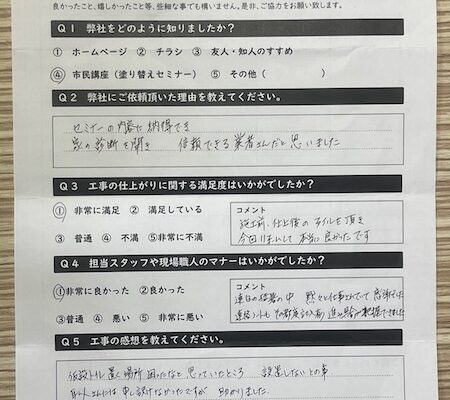 良かったこと、嬉しかったこと等、些細な事でも構いません。是非、ご協力をお願い致します。
Q1 弊社をどのように知りましたか？
① ホームページ ② チラシ ③ 友人・知人のすすめ
④ 市民講座（塗り替えセミナー） ⑤ その他（　　　　）
Q2 弊社にご依頼頂いた理由を教えてください。
セミナーの内容に納得でき
家の診断を聞き 信頼できる業者さんだと思いました
Q3 工事の仕上がりに関する満足度はいかがでしたか？
① 非常に満足 ② 満足している
③ 普通 ④ 不満 ⑤非常に不満
コメント
施工前、仕上後のファイルを頂き
今回リフォームして本当に良かったです
Q4 担当スタッフや現場職人のマナーはいかがでしたか？
①非常に良かった ②良かった
③普通 ④ 悪い ⑤ 非常に悪い
コメント
連日の猛暑の中 黙々と仕事されていて 感謝でした
連絡ノートも その都度記入有り 進み具合が把握できました
Q5 工事の感想を教えてください。
仮設トイレ置く場所 困ったなと思っていたところ 設置しないとの事
職人さんには申し訳なかったですが 助かりました